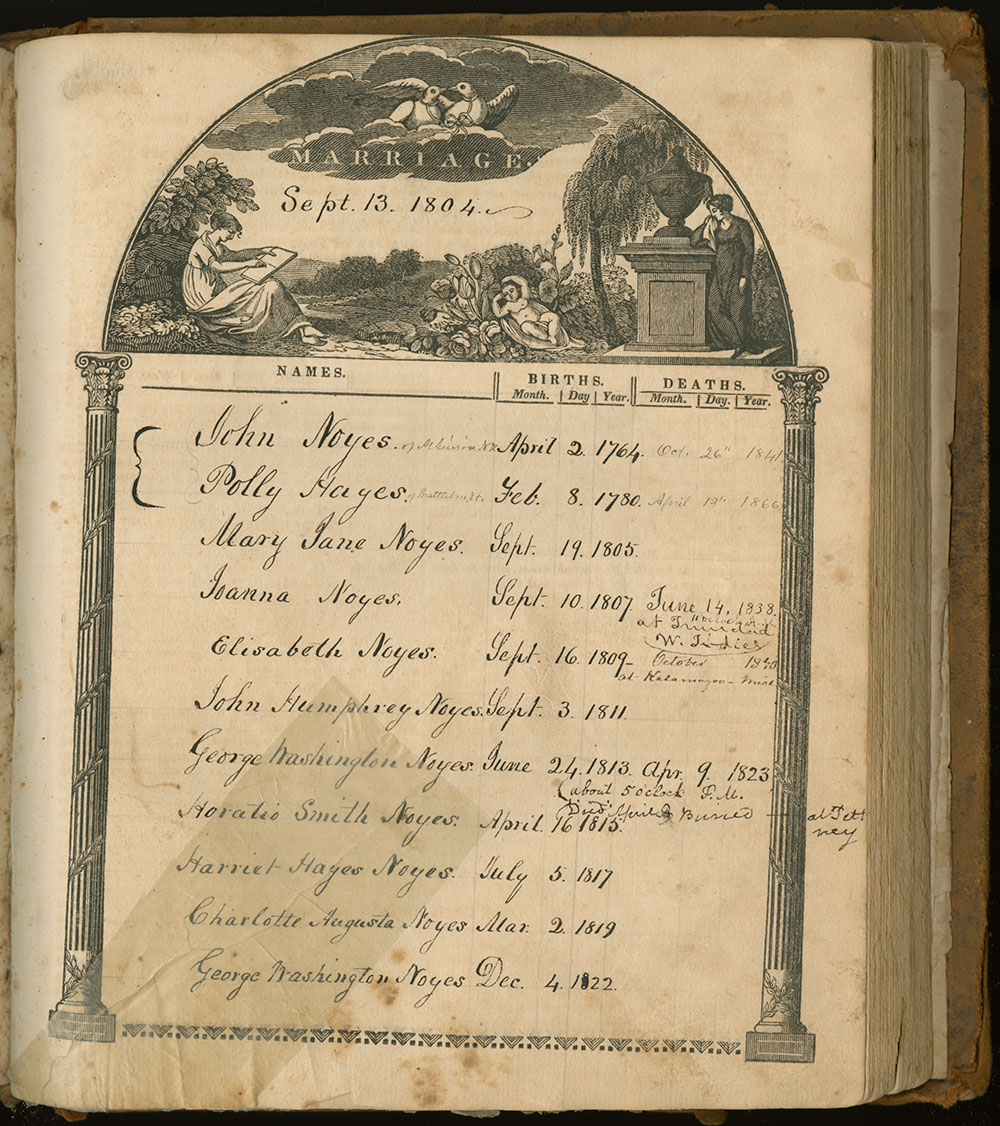 MARRIAGE.
Sept. 13. 1804.
NAMES. BIRTHS. DEATHS.
Month. Day Year. Month. Day. Year.
John Noyes. of Atkinson N.H. April 2. 1764. Oct. 26" 1841
Polly Hayes. of Brattleboro, Vt. Feb. 8. 1780. April 1866
Mary Jane Noyes. Sept. 19. 1805.
Joanna Noyes. Sept. 10. 1807. June 14, 1838
at Trinidad
W. Indies
Elisabeth Noyes. Sept. 16. 1809- October
at Kalamazoo - Mich
John Humphrey Noyes. Sept. 3. 1811.
George Washington Noyes. June 24. 1813. Apr. 9. 1823
(about 5 o'clock P.M.
Died April 9 Buried at Put
ney
Horatio Smith Noyes. April. 16 1815.
Harriet Hayes Noyes. July 5. 1817
Charlotte Augusta Noyes Mar. 2. 1819
George Washington Noyes Dec. 4. 1822.